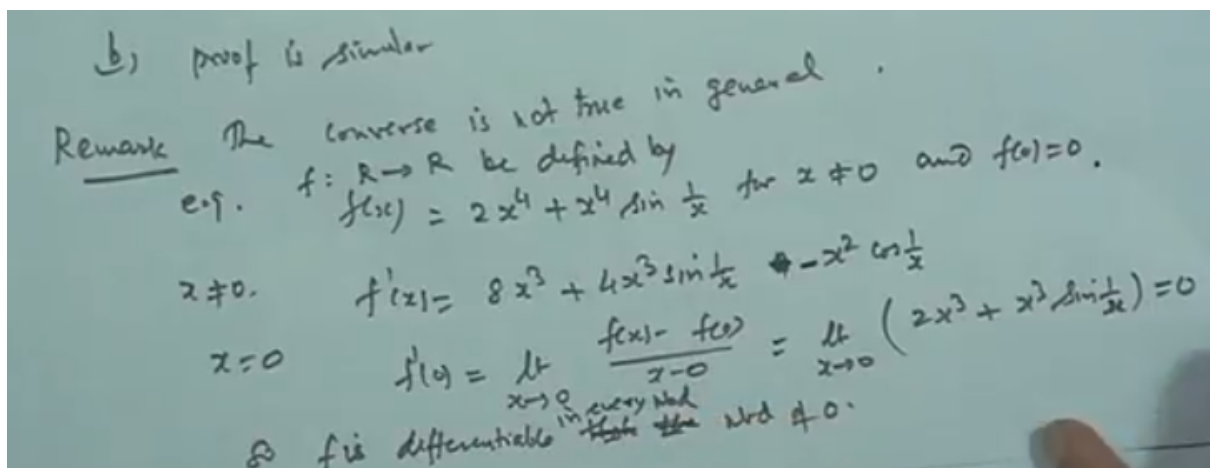 b) proof is similar
Remark The converse is not true in general.
e.g. f: R→R be defined by
f(x) = 2x⁴ + x⁴ sin 1/x for x ≠ 0 and f(0)=0.
x≠0. f'(x)= 8x³ + 4x³ sin 1/x - x² cos 1/x
x=0 f'(0) = lt x→0 (f(x)- f(0))/(x-0) = lt x→0 (2x³ + x³ sin 1/x) = 0
So f is differentiable in every Nbd Nbd of 0.